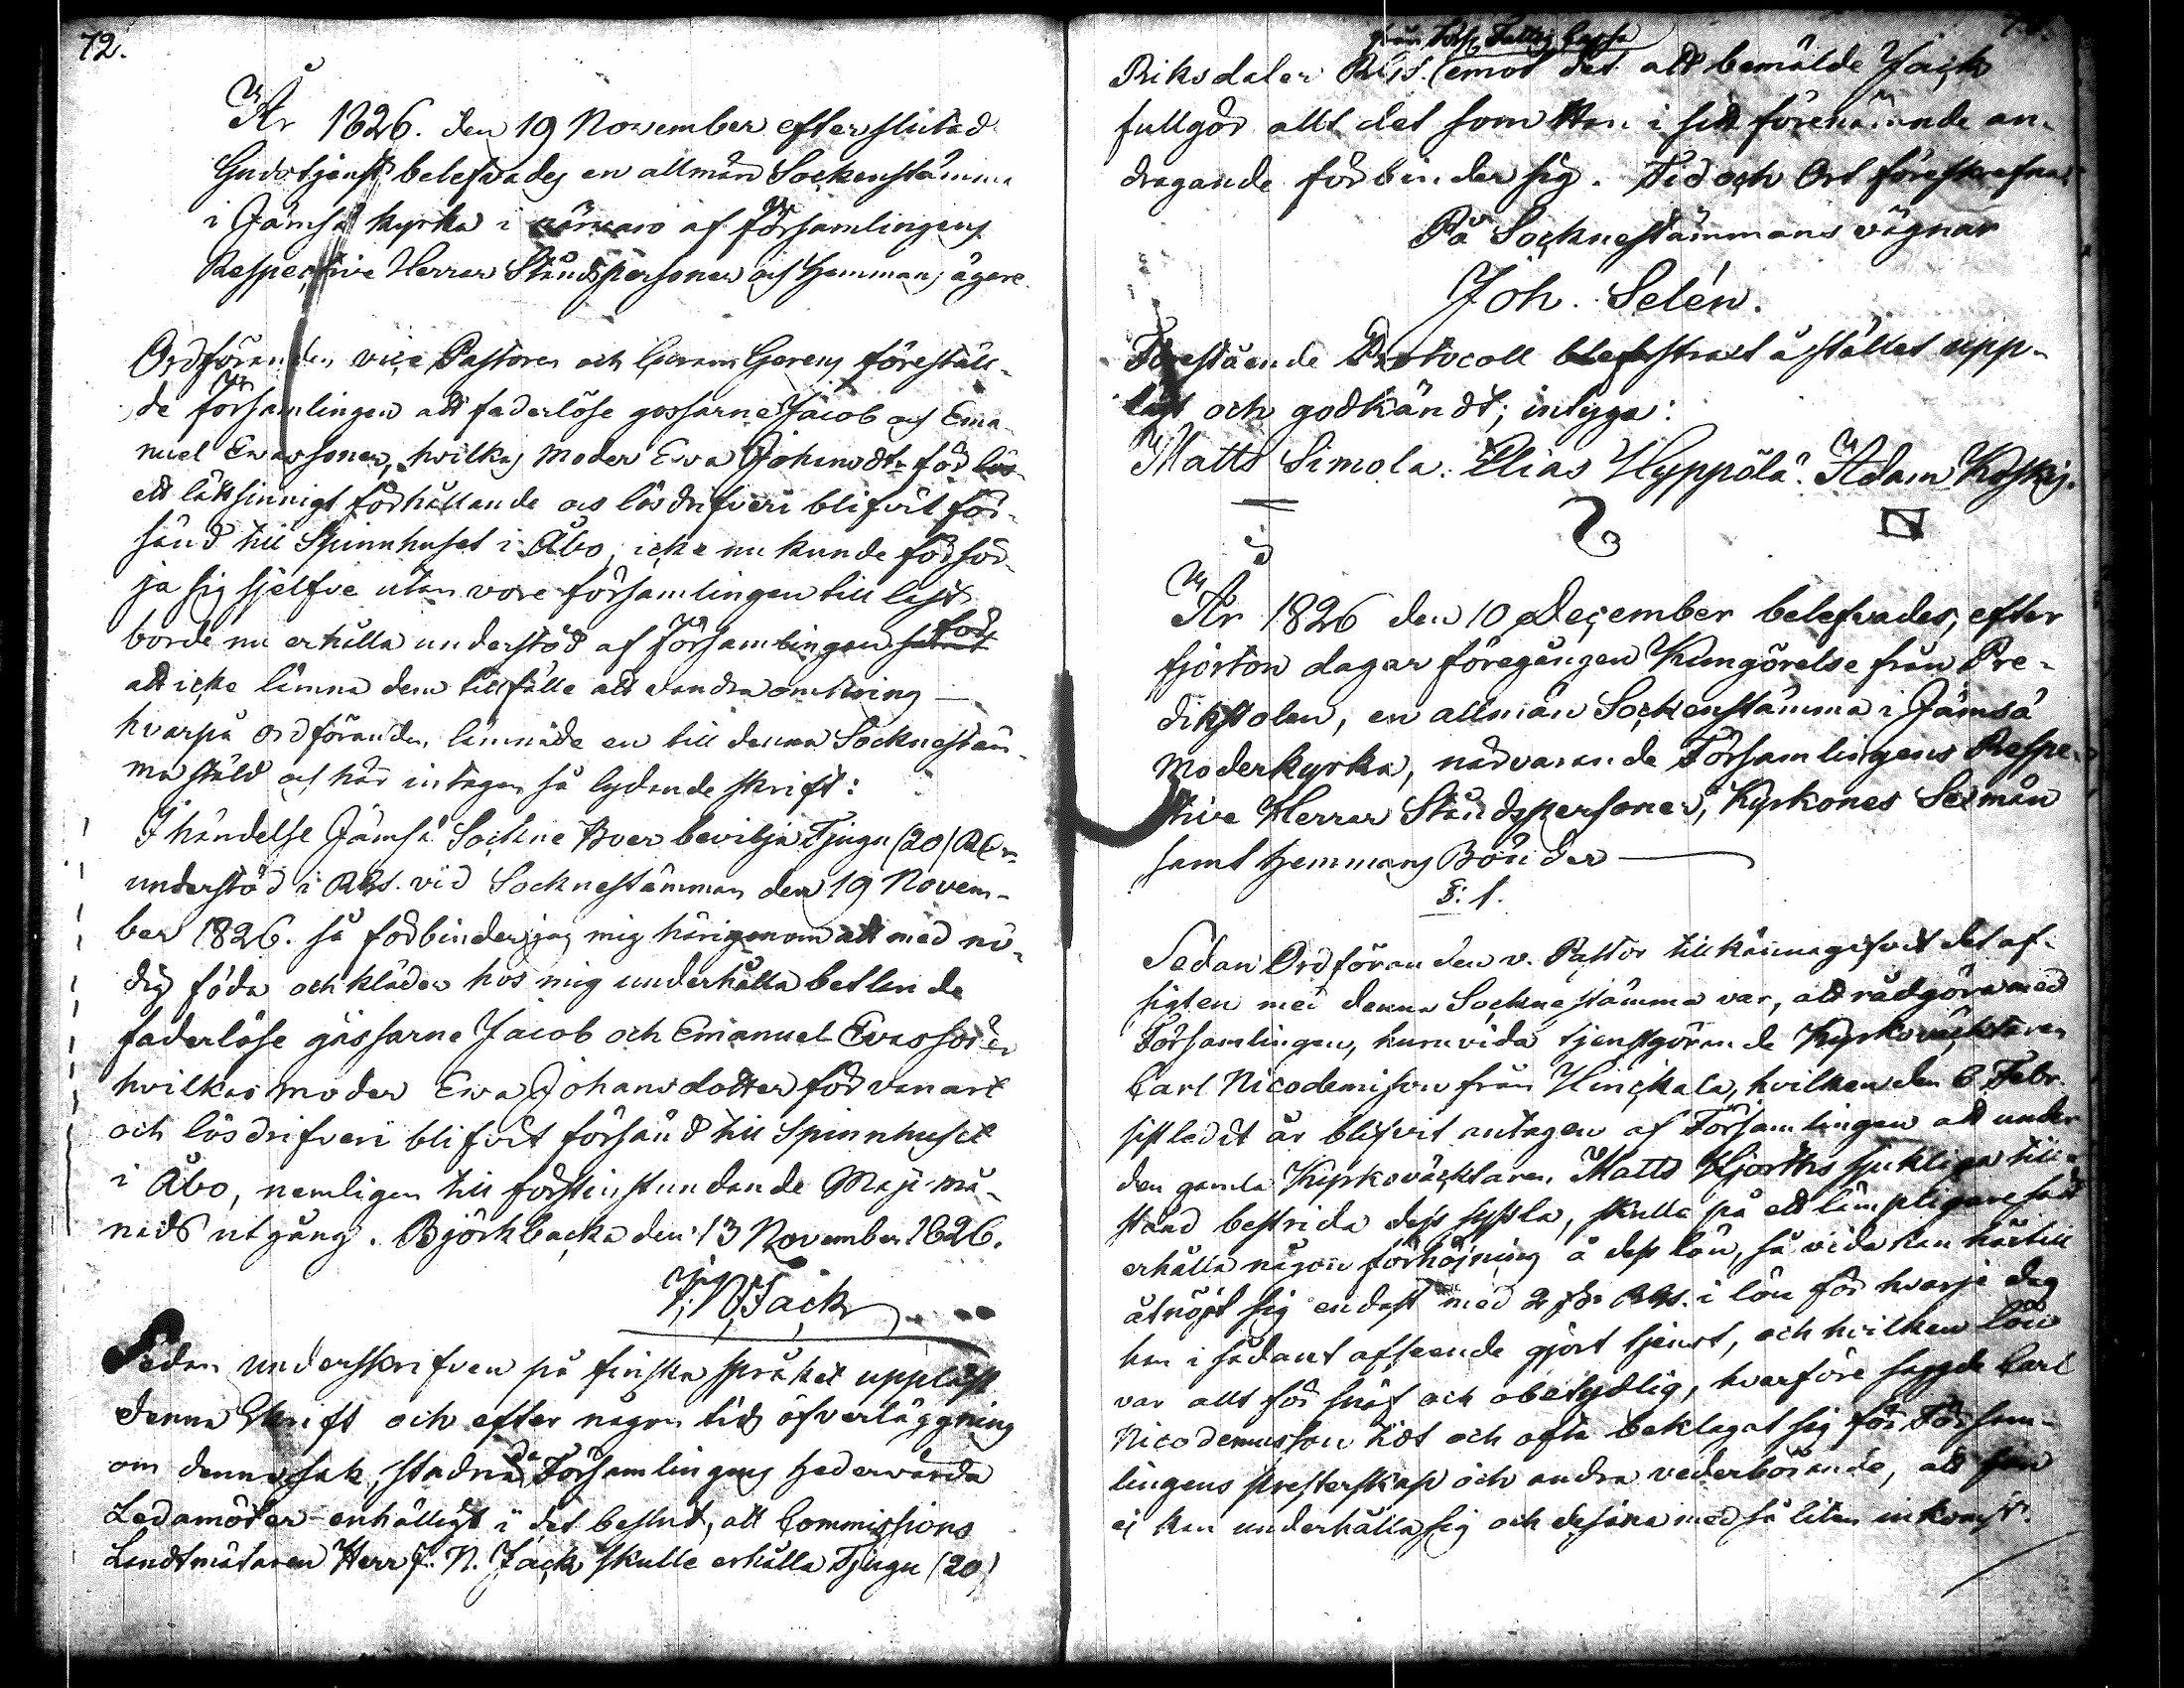 72.
År 1826. den 19 November efter slutad
Gudstjenst belefvades en allmän Sockenstämma
i Jämsä kyrka i närvaro af Församlingens
Respective Herrar Ståndspersoner och Hemmans ägare.
Ordföranden vice Pastoren och Gerens förestäld-
de församlingen att faderlöse gossarne Jacob och Ema-
nuel Evassoner, hvilkas moder Eva Johansdtr för
ett lättsinnigt förhållande och lösdrifveri blifvit för-
sänd till Spinnhuset i Åbo, icke nu kunde försör-
ja sig sjelfve utan vore församlingen till last
borde nu erhålla understöd af församlingen för
att icke lämna dem tillfälle att vandra omkring —
hvarpå ordföranden lämnade en till denna Socknestäm-
ma stäld och här intagen så lydande skrift:
I händelse Jämsä Sockne Boer bevilja Tjugu (20) R
understöd i RGS. vid Socknestämman den 19 Novem-
ber 1826. så förbinder jag mig härigenom att med nö-
dig föda och kläder hos mig underhålla betlande
faderlöse gossarne Jacob och Emanuel Evassöner
hvilkas moder Eva Johansdotter för vanart
och lösdrifveri blifvit försänd till Spinnhuset
i Åbo, nemligen till förstinstundande Maji må-
nads utgång. Björkbacka den 13 November 1826.
J. N. Jack
Sedan underskrifven på finska språket uppläst
denna Skrift och efter någon tids öfverläggning
om denna sak, stadnade Församlingens hedervärda
Ledamöter enhälligt i det beslut, att Commissions
Landtmätaren Herr J. N. Jack skulle erhålla Tjugu (20)
från Förs. Fattig Cassa
Riksdaler RGS. (emot det att bemälde Jack
fullgör allt det som Han i sitt förenämnde an-
dragande förbinder sig. Tid och Ort föreskrefna
På Socknestämmans vägnar
Joh. Selén.
Förestående Protocoll blef strax å stället upp-
läst och godkändt; intyga:
Matts Simola. Elias Hyppölä. Adam Koskij.
År 1826 den 10 December belefvades, efter
fjorton dagar föregången Kungörelse från Pre-
dikstolen, en allmän Sockenstämma i Jämsä
Moderkyrka, närvarande Församlingens Respec-
tive Herrar Ståndspersoner, Kyrkones Sexmän
samt Hemmans Bönder —
§: 1.
Sedan Ordföranden v. Pastor tillkännagifvit det af-
sigten med denna Socknestämma var, att rådgöra med
Församlingen, huruvida tjenstgörande Kyrkoväcktaren
Carl Nicodemison från Hinckala, hvilken den 6 Febr.
sistledit år blifvit antagen af Församlingen att under
den gamla Kyrkoväcktaren Matts Hjorths sjukliga till-
stånd bestrida dess syssla, skulle på ett lämpligare sätt
erhålla någon förhöjning å dess lön, så vida han härtill
åtnöjt sig endast med 2 RGS. i lön för hvarje dag
han i sådant afseende gjort tjenst, och hvilken lön
var allt för snäf och obetydlig, hvarföre sagde Carl
Nicodemusson tidt och ofta beklagat sig för Försam-
lingens Presterskap och andra vederbörande, att han
ej kan underhålla sig och de sina med så liten inkomst.